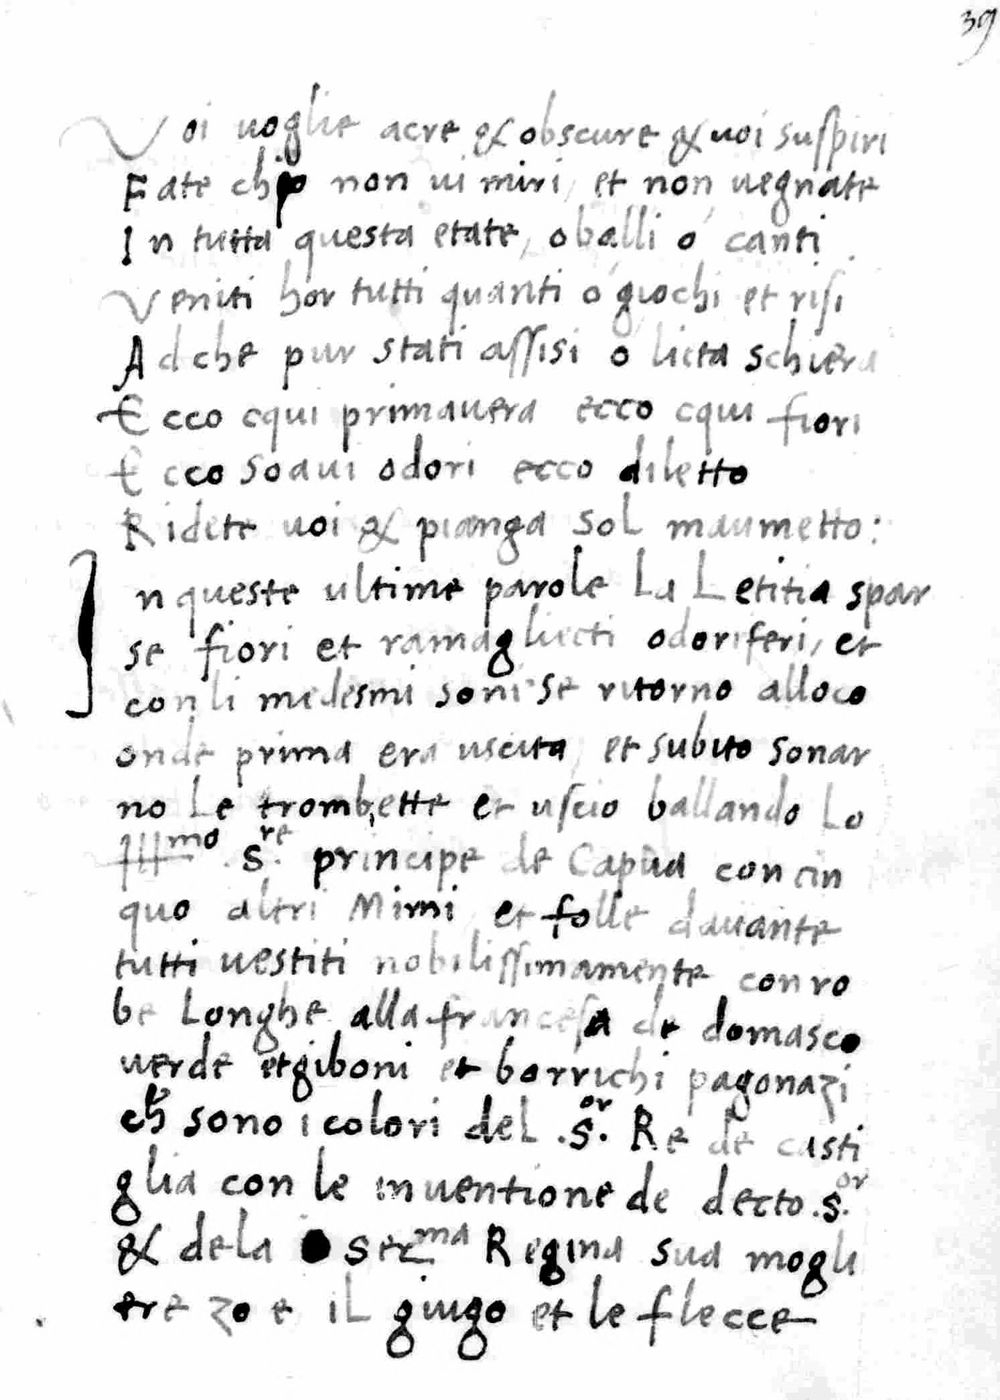 39
Voi uoglie acre & obscure & uoi suspiri
Fate chio non ui miri, et non uegnate
In tutta questa etate, o balli o canti
Veniti hor tutti quanti o giochi et risi
Ad che pur stati assisi o lieta schiera
Ecco cqui primauera ecco cqui fiori
Ecco soaui odori ecco diletto
Ridete uoi & pianga sol maumetto:
In queste ultime parole La Letitia spar
se fiori et ramagliecti odoriferi, et
con li medesmi soni se ritorno alloco
onde prima era uscita, et subito sonar
no Le trombette et uscio ballando Lo
Illmo .S.re principe de Capua con cin
quo altri Mimi et folle dauante
tutti uestiti nobilissimamente con ro
be Longhe alla francesa de domasco
uerde et giboni et borrichi pagonazi
ch sono i colori del .S.or Re de casti
glia con le inuentione de decto .S.or
& dela Serma Regina sua mogli
ere zo e iL giugo et le flecce